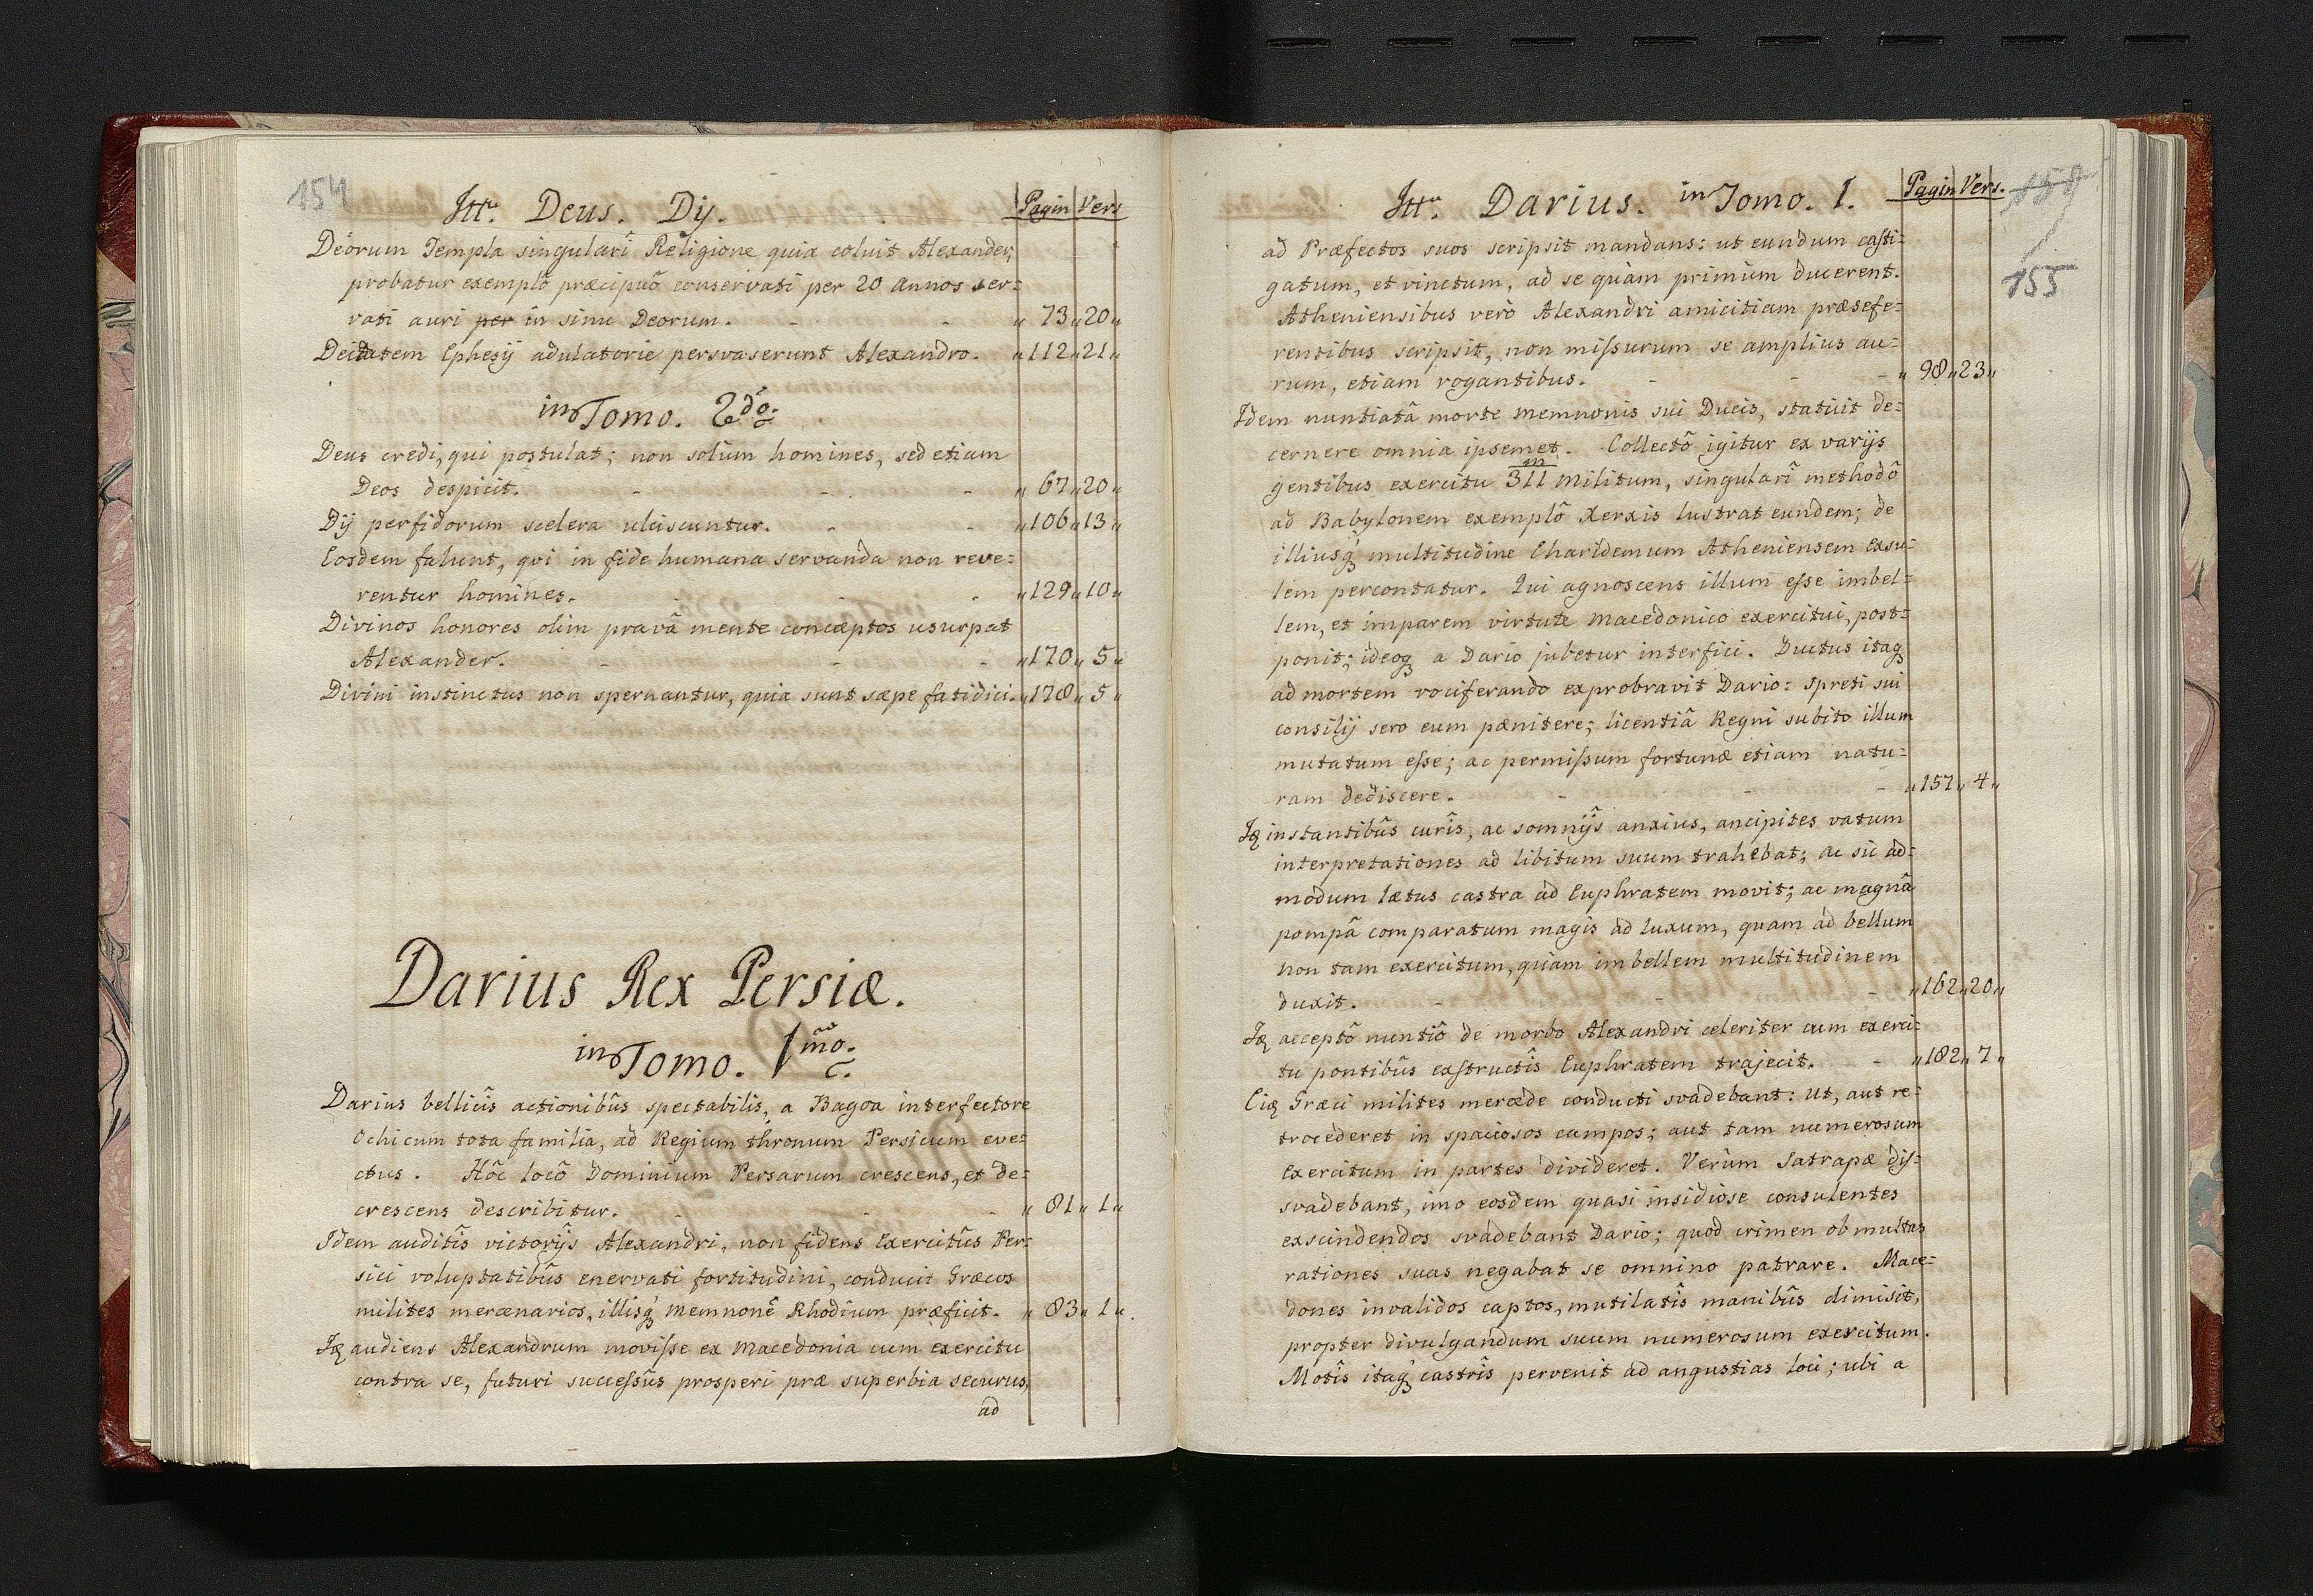 154
Ittr. Deus. Dij.
Pagin Vers
Deorum Templa singularî Religione quia coluit Alexander,
probatur exemplô præcipuô conservati per 20 annos ser=
vati auri per in sinu Deorum. - - „ 73 „ 20 „
Deitatem Ephesij adulatorie persvaserunt Alexandro. „ 112 „ 21 „
in Tomo. 2do.
Deus credi, qui postulat; non solum homines, sed etiam
Deos despicit. - - - „ 67 „ 20 „
Dij perfidorum scelera ulciscuntur. - - „ 106 „ 13 „
Eosdem falunt, qvi in fide humana servanda non reve=
rentur homines. - - - „ 129 „ 10 „
Divinos honores olim pravâ mente conceptos usurpat
Alexander. - - - „ 170 „ 5 „
Divini instinctus non spernantur, quia sunt sæpe fatidici. „ 178 „ 5 „
Darius Rex Persiæ.
in Tomo. 1mo.
Darius bellicîs actionibûs spectabilis, a Bagoa interfectore
Ochi cum tota familia, ad Regium thronum Persicum eve=
ctus. Hôc locô Dominium Persarum crescens, et de=
crescens describitur. - - - „ 81 „ 1 „
Idem auditîs victorijs Alexandri, non fidens Exercitûs Per=
sici voluptatibûs enervati fortitudini, conducit Græcos
milites mercenarios, illisq́ Memnonē Rhodium præficit. „ 83 „ 1 „
Iq audiens Alexandrum movisse ex Macedonia cum exercitu
contra se, futuri successûs prosperi præ superbia securus,
ad
Ittr. Darius. in Tomo. 1.
Pagin Vers.
159
155
ad Præfectos suos scripsit mandans: ut eundum casti=
gatum, et vinctum, ad se quàm primùm ducerent.
Atheniensibus verò Alexandri amicitiam præsefe=
rentibus scripsit, non missurum se amplius au=
rum, etiam rogantibus. - - - „ 98 „ 23 „
Idem nuntiatâ morte Memnonis sui Ducis, statuit de=
cernere omnia ipsemet. Collectô igitur ex varijs
gentibus exercitu 311 m militum, singularî methodô
ad Babylonem exemplô Xerxis lustrat eundem; de
illiusq́ multitudine Charidemum Atheniensem exsu=
lem percontatur. Qui agnoscens illum esse imbel=
lem, et imparem virtute Macedonico exercitui, post=
ponit; ideoq a Dario jubetur interfici. Ductus itaq
ad mortem vociferando exprobravit Dario: spreti sui
consilij sero eum pænitere; licentiâ Regni subito illum
mutatum esse; ac permissum fortunæ etiam natu=
ram dediscere. - - - „ 157 „ 4 „
Iq instantibûs curîs, ac somnijs anxius, ancipites vatum
interpretationes ad libitum suum trahebat; ac sic ad=
modum lætus castra ad Euphratem movit; ac magnâ
pompâ comparatum magis ad luxum, quam ad bellum
non tam exercitum, quàm imbellem multitudinem
duxit. - - - „ 162 „ 20 „
Iq acceptô nuntiô de morbo Alexandri celeriter cum exerci=
tu pontibûs exstructîs Euphratem trajecit. - „ 182 „ 7 „
Eiq Græci milites mercede conducti svadebant: ut, aut re=
trocederet in spaciosos campos; aut tam numerosum
exercitum in partes divideret. Verùm Satrapæ dis=
svadebant, imo eosdem quasi insidiose consulentes
exscindendos svadebant Dario; quod crimen ob multas
rationes suas negabat se omnino patrare. Mace=
dones invalidos captos, mutilatîs manibûs dimisit,
propter divulgandum suum numerosum exercitum.
Motîs itaq́ castrîs pervenit ad angustias loci; ubi a